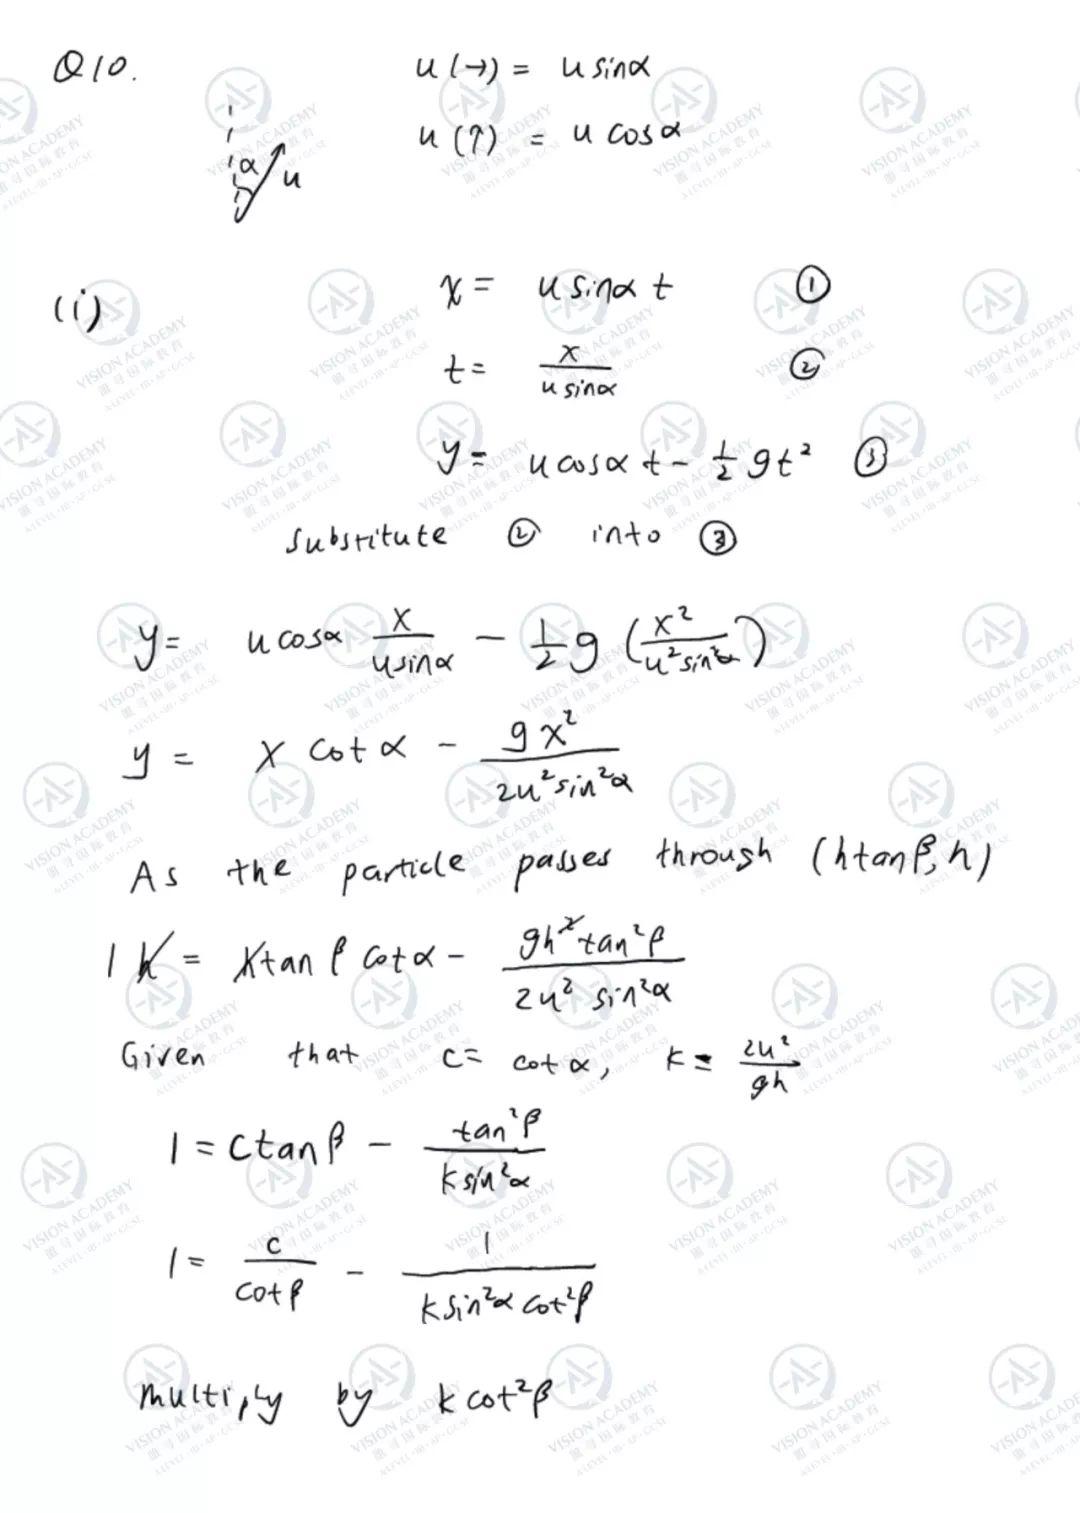 Q10.
u (→) = u sinα
u (↑) = u cosα
α
u
(i)
x = u sinα t ①
t = x / (u sinα) ②
y = u cosα t - 1/2 gt² ③
Substitute ② into ③
y = u cosα x/(u sinα) - 1/2 g (x²/(u² sin²α))
y = x cot α - gx²/(2u² sin²α)
As the particle passes through (h tanβ, h)
1 h = h tan β cot α - gh² tan²β/(2u² sin²α)
Given that c = cot α, k = 2u²/gh
1 = c tan β - tan²β/(k sin²α)
1 = c/cot β - 1/(k sin²α cot²β)
multiply by k cot²β
VISION ACADEMY
A LEVEL·IB·AP·GCSE